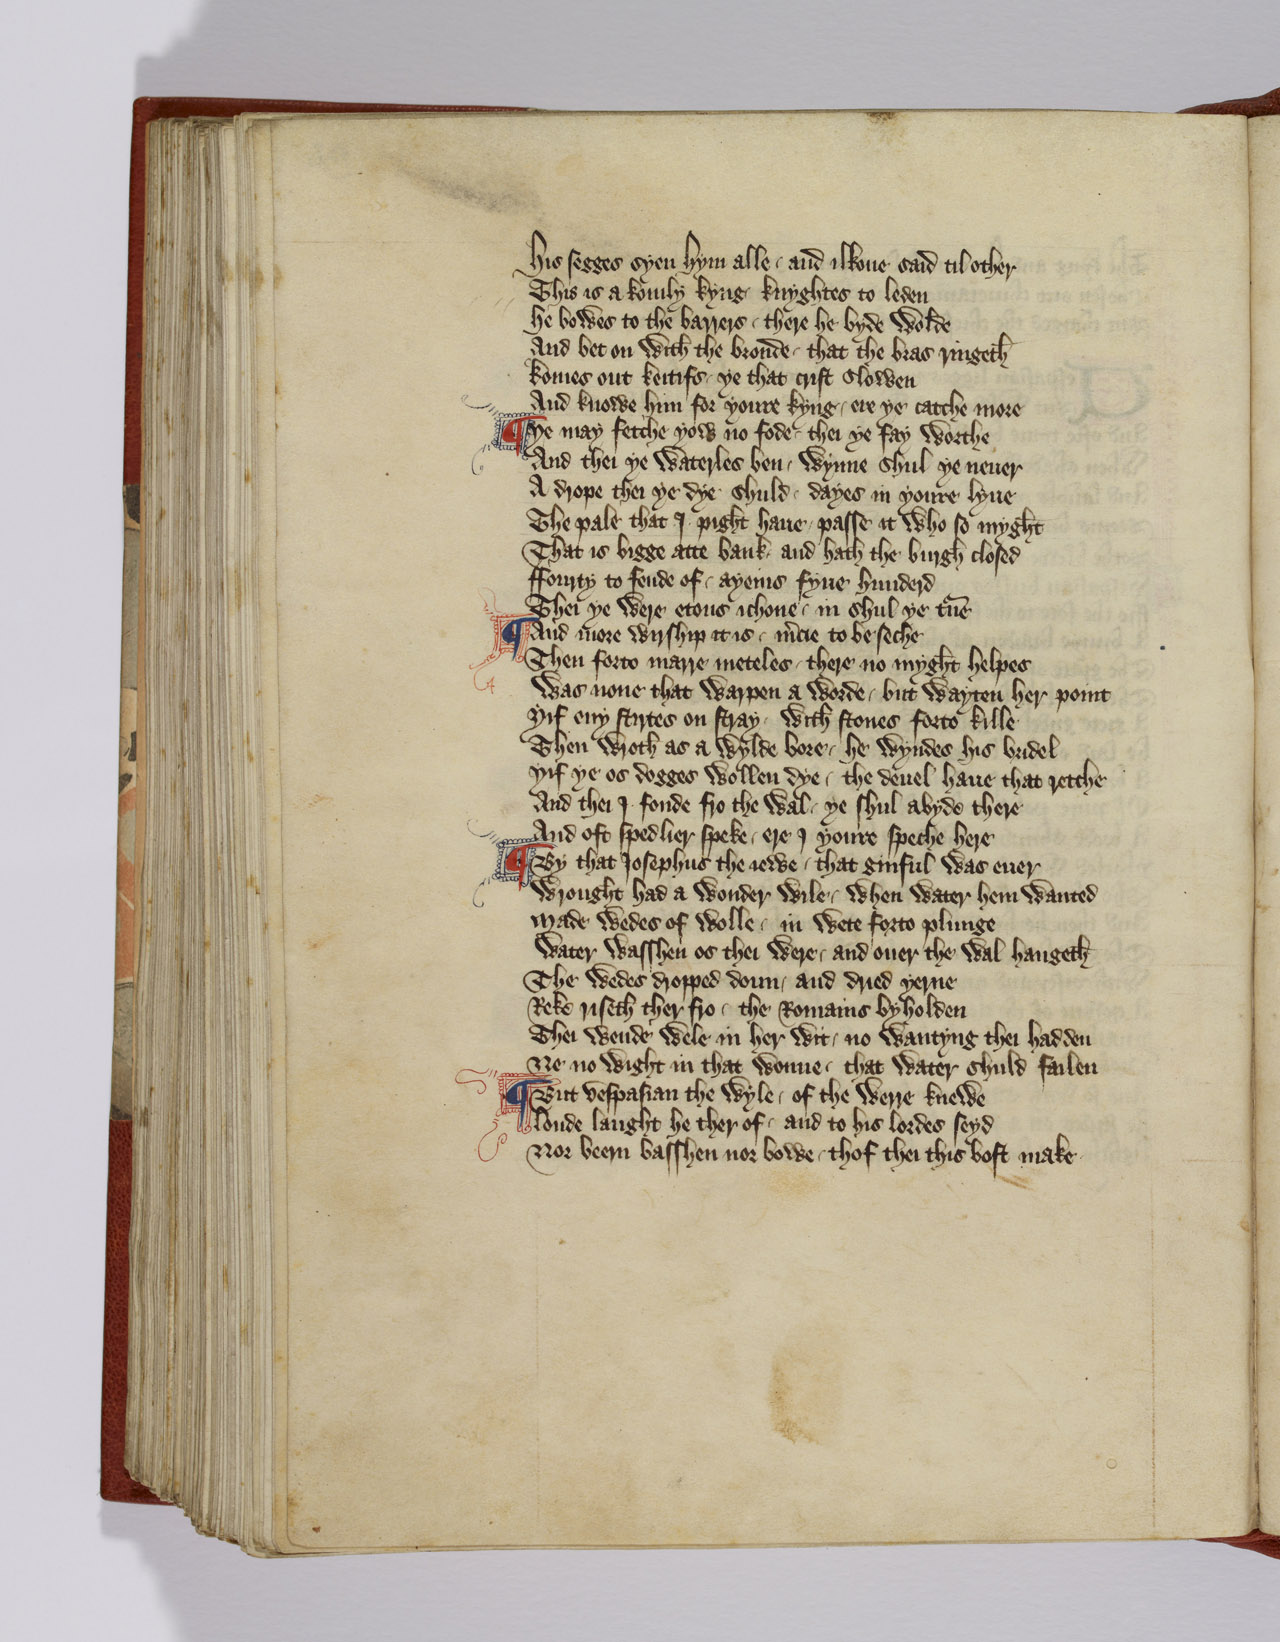 His segges syen hym alle / and ilkone said til other
This is a komly kyng / knyghtes to leden
He bowes to the barrers / there he byde wolde
And bet on with the bronde / that the bras ringeth
Komes out keitifs / ye that crist slowen
And knowe him for youre kyng / ere ye catche more
¶ Ye may fetche yow no fode / thei ye fay worthe
And thei ye waterles ben / wynne shul ye neuer
A drope thei ye dye shuld / dayes in youre lyue
The pale that I pight haue / passe it who so myght
That is bigge atte bank / and hath the burgh closed
ffourty to fende of / ayeins fyue hunderd
Thei ye were etous ichone / in shul ye tūe
¶ And more wirship it is / m̄cie to be seche
Then forto marre meteles / there no myght helpes
Was none that warpen a worde / but wayten her point
Yif eny stirtes on stray / with stones forto kille
Then wroth as a wylde bore / he wyndes his bridel
Yif ye os dogges wollen dye / the deuel haue that retche
And thei I fonde fro the wal / ye shul abyde there
And oft spedlier speke / ere I youre speche here
¶ By that Josephus the iewe / that ginful was euer
Wrought had a wonder wile / when water hem wanted
Made wedes of wolle / in wete forto plunge
Water wasshen os thei were / and ouer the wal hangeth
The wedes dropped doun / and dried yerne
Reke riseth ther fro / the Romains byholden
Thei wende wele in her wit / no wantyng thei hadden
Ne no wight in that wonne / that water shuld failen
¶ But vespasian the wyle / of the werre knewe
Loude laught he ther of / and to his lordes seyd
Nor beern basshen nor bowe / thof thei this bost make